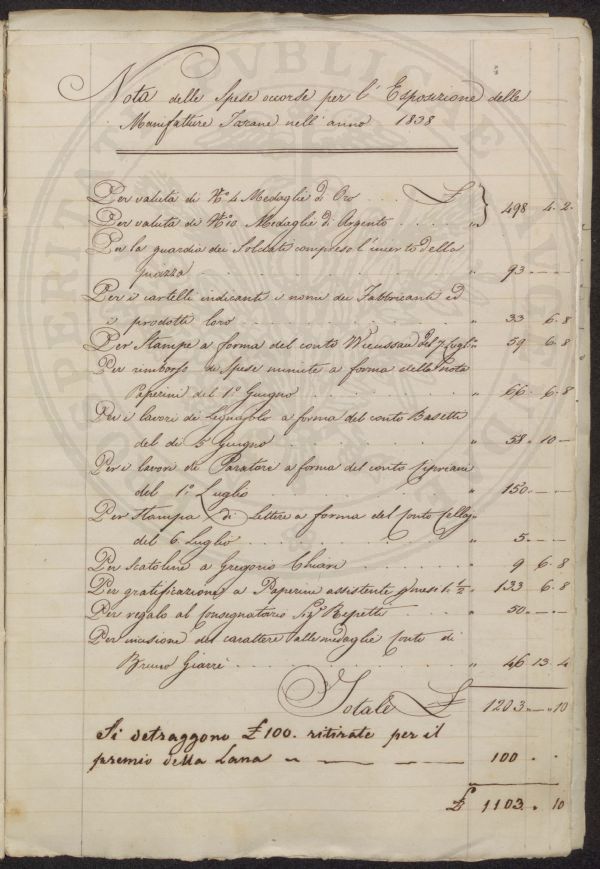 Nota delle Spese occorse per l'Esposizione delle
Manifatture Toscane nell'anno 1838
Per valuta di N.o 4 Medaglie di Oro . . . £
Per valuta di N.o 10 Medaglie di Argento . . . . " 498. 4. 2.
Per la guardia dei Soldati compreso l'incerto della
piazza . . . . . . . . " 93. — —
Per i cartelli indicanti i nomi dei Fabbricanti ed
i prodotti loro . . . . . . . . " 33. 6. 8
Per Stampe a forma del conto Vieusseux del 7 Lugli " 59. 6. 8
Per rimborso di Spese minute a forma della nota
Paperini del 1.o Giugno . . . . . . " 66. 6. 8
Per i lavori di Legnajolo a forma del conto Basetti
del dì 5 Giugno . . . . . . . " 58. 10 —
Per i lavori di Paratore a forma del conto Cipriani
del 1.o Luglio . . . . . . . . " 150. — —
Per Stampa di Lettere a forma del Conto
del 6 Luglio . . . . . . . . " 5. — —
Per Scatoline a Gregorio Chiari . . . . . " 9 6. 8
Per gratificazione a Paperini assistente p mesi 1. 1/2 " 133 6. 8
Per regalo al Consegnatario Sig.r Repetti . . . " 50 — —
Per incisione dei caratteri alle medaglie Conto di
Bruno Giarrè . . . . . . . . " 46. 13. 4
Totale £ 1203. — " 10
Si detraggono £ 100. ritirate per il
premio della Lana " — — — 100 . .
£ 1103. " 10